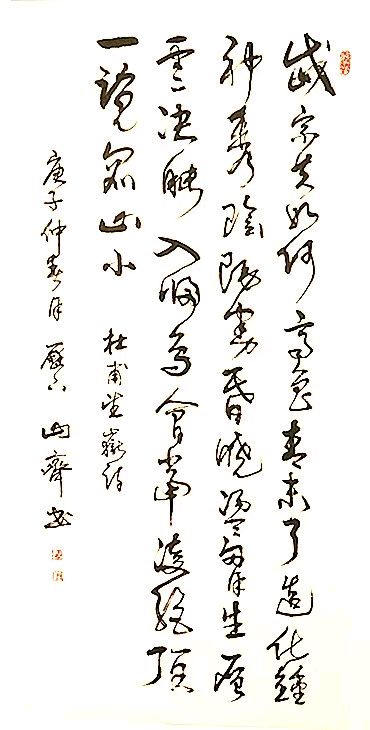 岱宗夫如何齊魯青未了造化鍾
神秀陰陽割昏曉盪胸生層
雲決眦入歸鳥會當凌絕頂
一覽众山小
杜甫望嶽詩
庚子仲春月山齊书